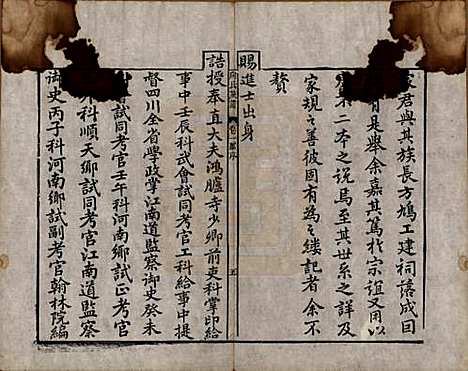 家君與其族長方鳩工建祠落成回
有是舉余嘉其篤於宗誼又用以
第二本之說焉至其世系之詳及
家規之善彼固有為之縷記者余不
贅
賜進士出身
誥授奉直大夫鴻臚寺少卿前吏科掌印給
事中壬辰科武會試同考官工科給事中提
督四川全省學政掌江南道監察御史癸未
科順天鄉試同考官壬午科河南鄉試正考官
科順天鄉試同考官江南道監察
御史丙子科河南鄉試副考官翰林院編